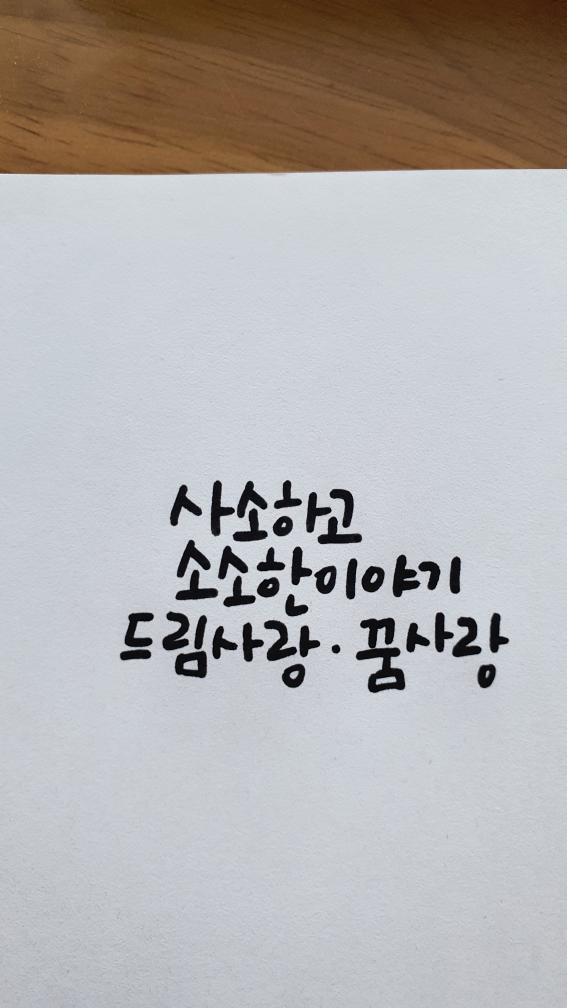 사소하고
소소한이야기
드림사랑·꿈사랑